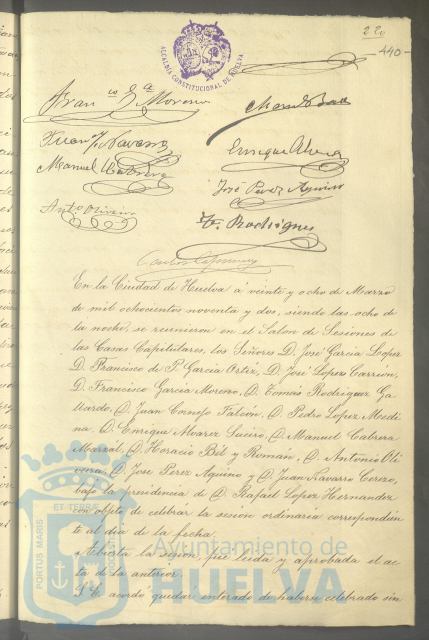 220
-440-
ALCALDÍA CONSTITUCIONAL DE HUELVA
Fran.co Ga. Moreno
Juan J. Navarro
Enrique Alvarez
Manuel Cabrera
José Perez Aquino
Ant.o Oliveira
T. Rodriguez
En la Ciudad de Huelva á veinte y ocho de Marzo
de mil ochocientos noventa y dos, siendo las ocho de
la noche, se reunieron en el Salon de Sesiones de
las Casas Capitulares, los Señores D. José Garcia Lopez
D. Francisco de P. Garcia Ortiz, D. José Lopez Carrión,
D. Francisco Garcia Moreno, D. Tomás Rodriguez Ga
llardo, D. Juan Cornejo Falcón, D. Pedro Lopez Medi
na, D. Enrique Alvarez Sueiro, D. Manuel Cabrera
Marzál, D. Horacio Bel y Román, D. Antonio Oli
veira, D. José Perez Aquino y D. Juan Navarro Cerezo,
bajo la presidencia de D. Rafael Lopez Hernandez
con objeto de celebrar la sesión ordinaria correspondien
te al dia de la fecha.
Abierta la sesión fué leida y aprobada el ac
ta de la anterior.
Se acordó quedar enterado de haberse celebrado sin
PORTUS MARIS ET TERRAE
Ayuntamiento de
HUELVA